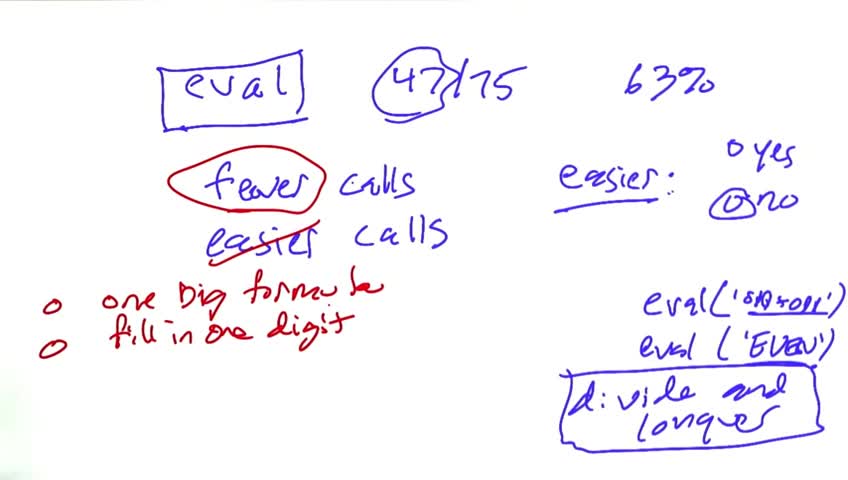 eval 47/75 63%
fewer calls
easier calls
easier: yes
no
one big formula
fill in one digit
eval('ODD+ODD')
eval('EVEN')
divide and
conquer